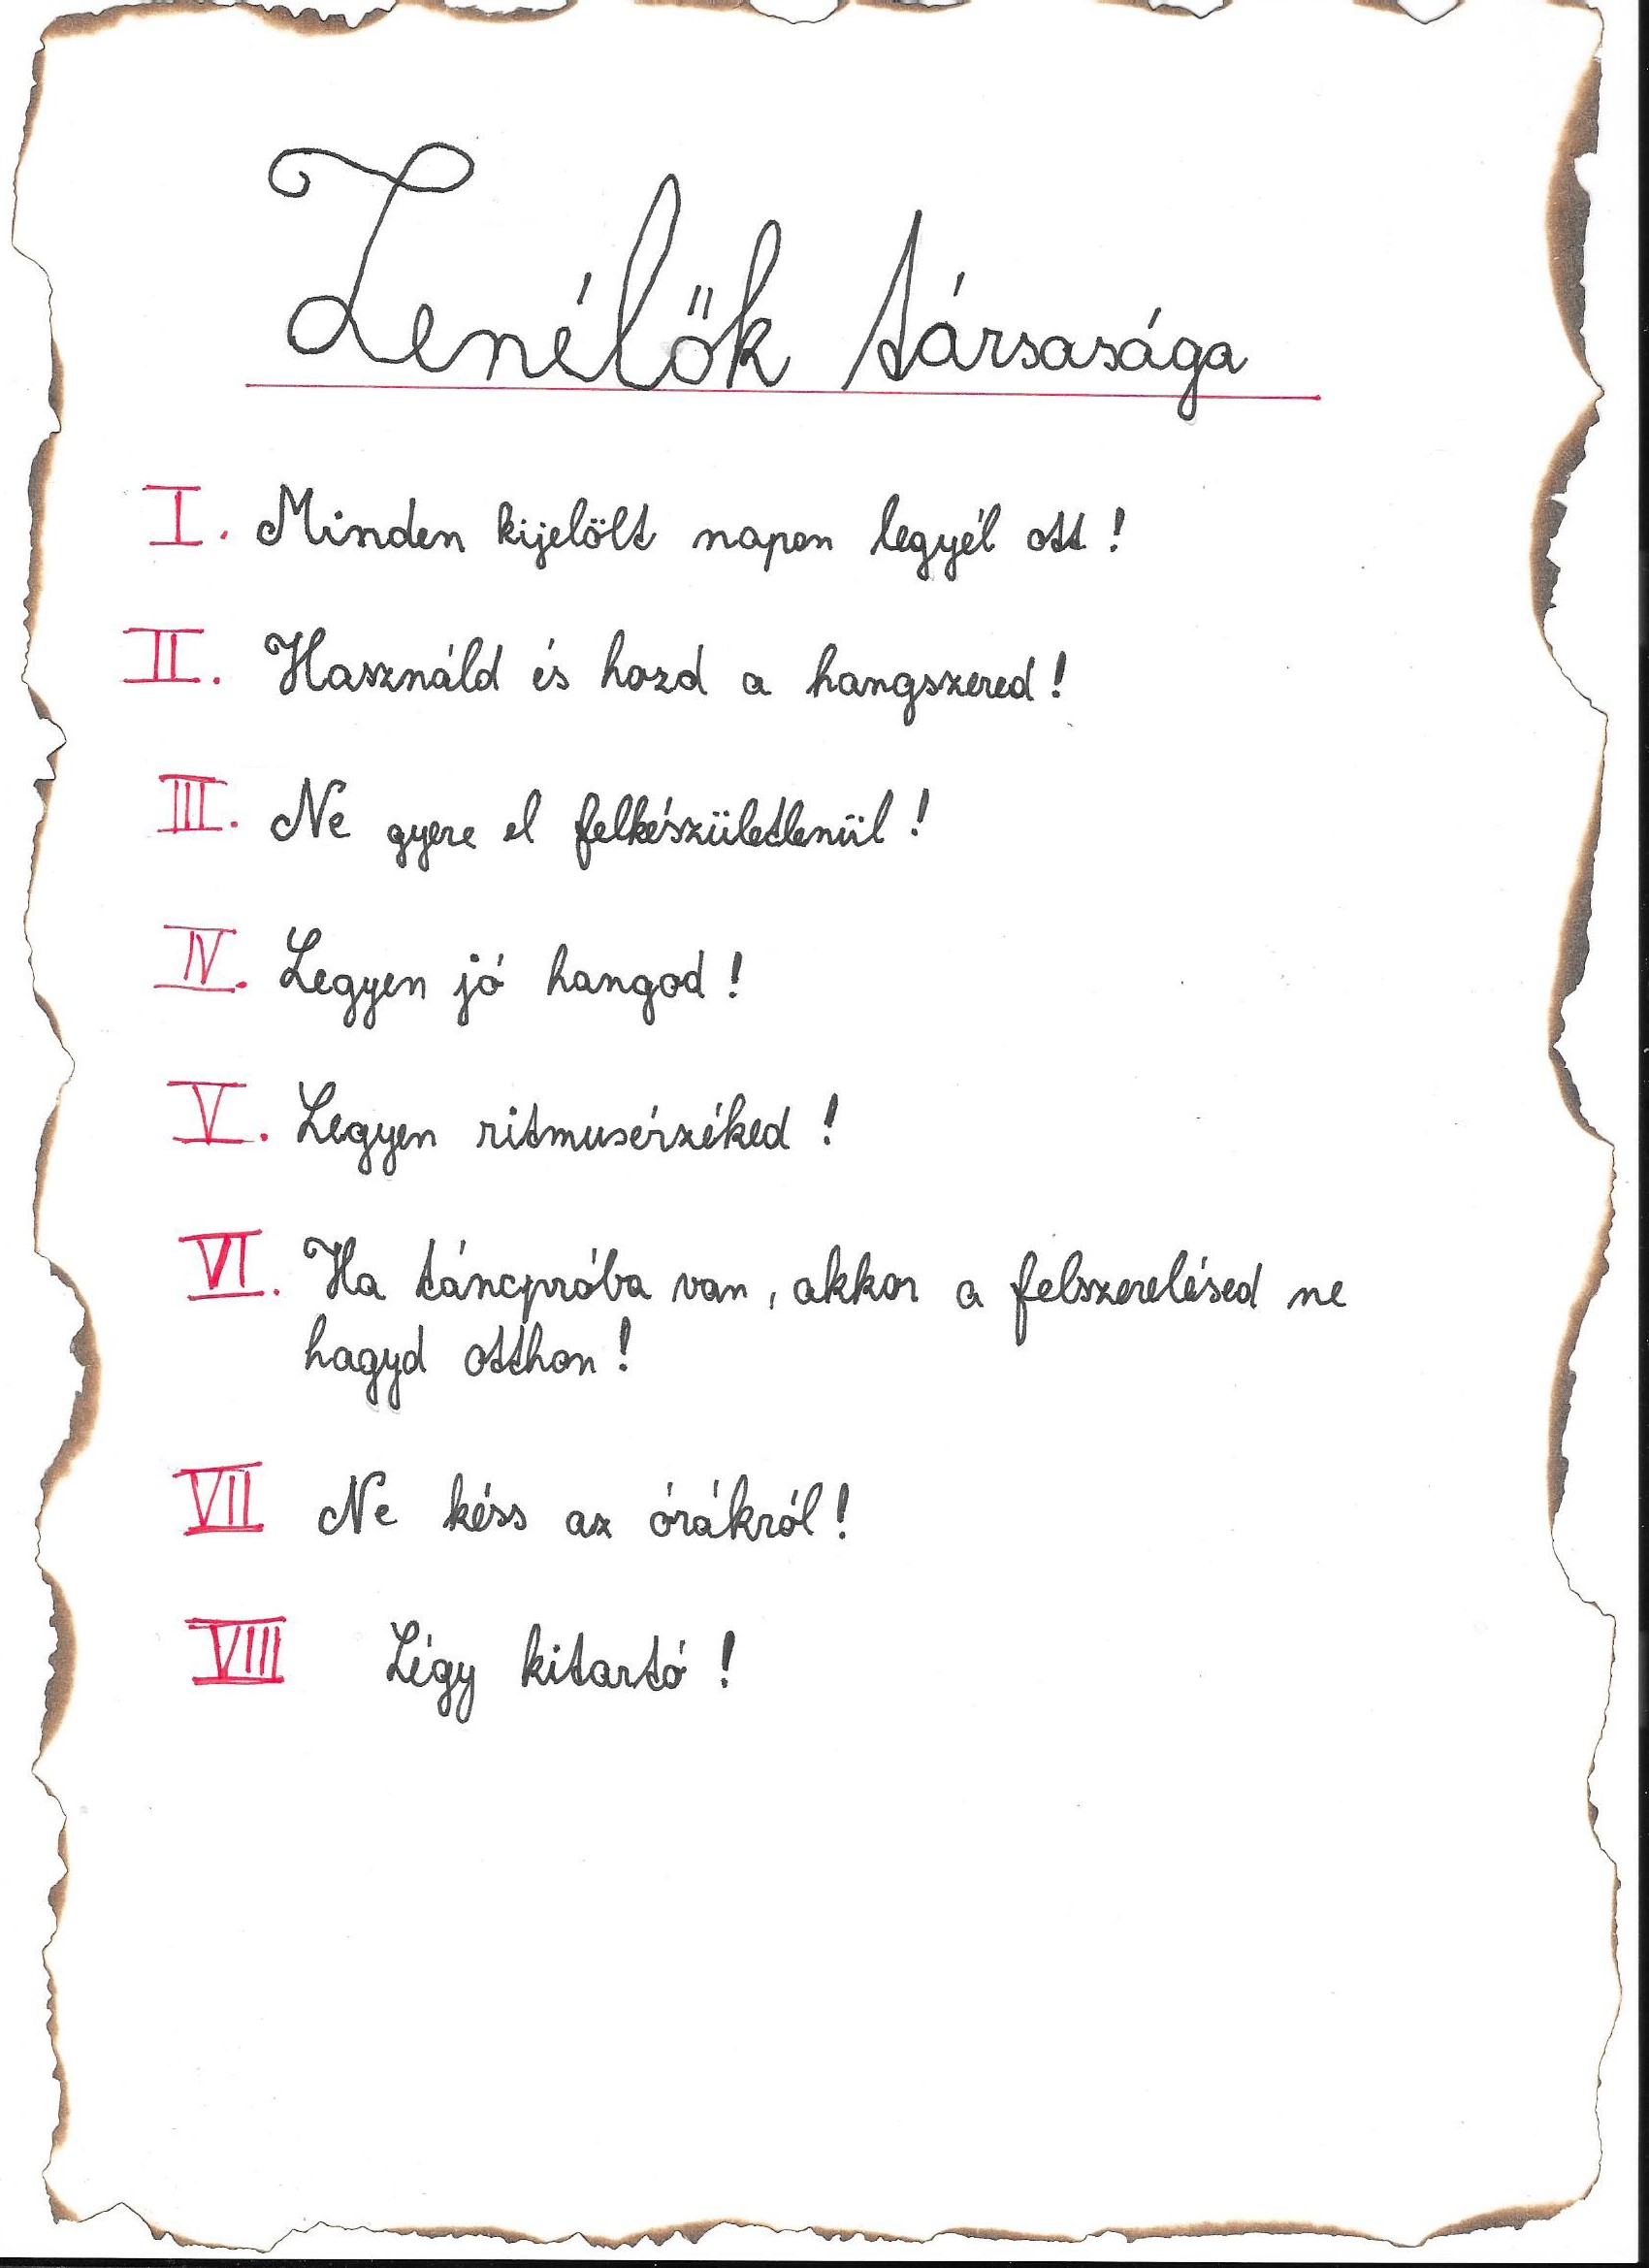 Zenélők társasága
I. Minden kijelölt napon legyél ott!
II. Használd és hozd a hangszered!
III. Ne gyere el felkészületlenül!
IV. Legyen jó hangod!
V. Legyen ritmusérzéked!
VI. Ha táncpróba van, akkor a felszerelésed ne
hagyd otthon!
VII Ne késs az órákról!
VIII Légy kitartó!